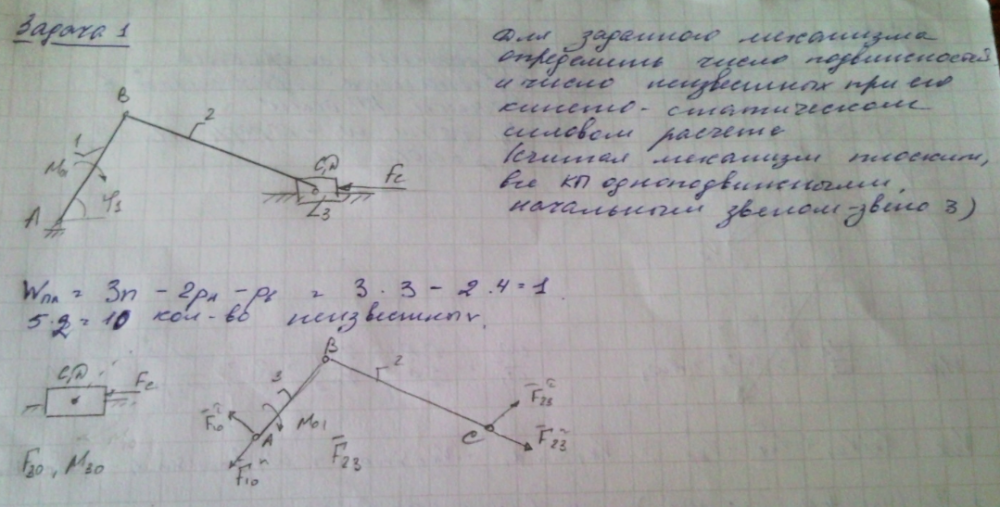 Задача 1
Для заданного механизма
определить число подвижностей
и число неизвестных при его
кинето-статическом
силовом расчете
(считая механизм плоским,
все КП одноподвижными,
начальным звеном-звено 3)
B
2
1
C,D
Fc
A
φ1
3
Wпл = 3n - 2pн - pв = 3·3 - 2·4 = 1
5·2 = 10 кол-во неизвестных.
B
2
C,D
Fc
3
M01
A
F23
C
F30, M30